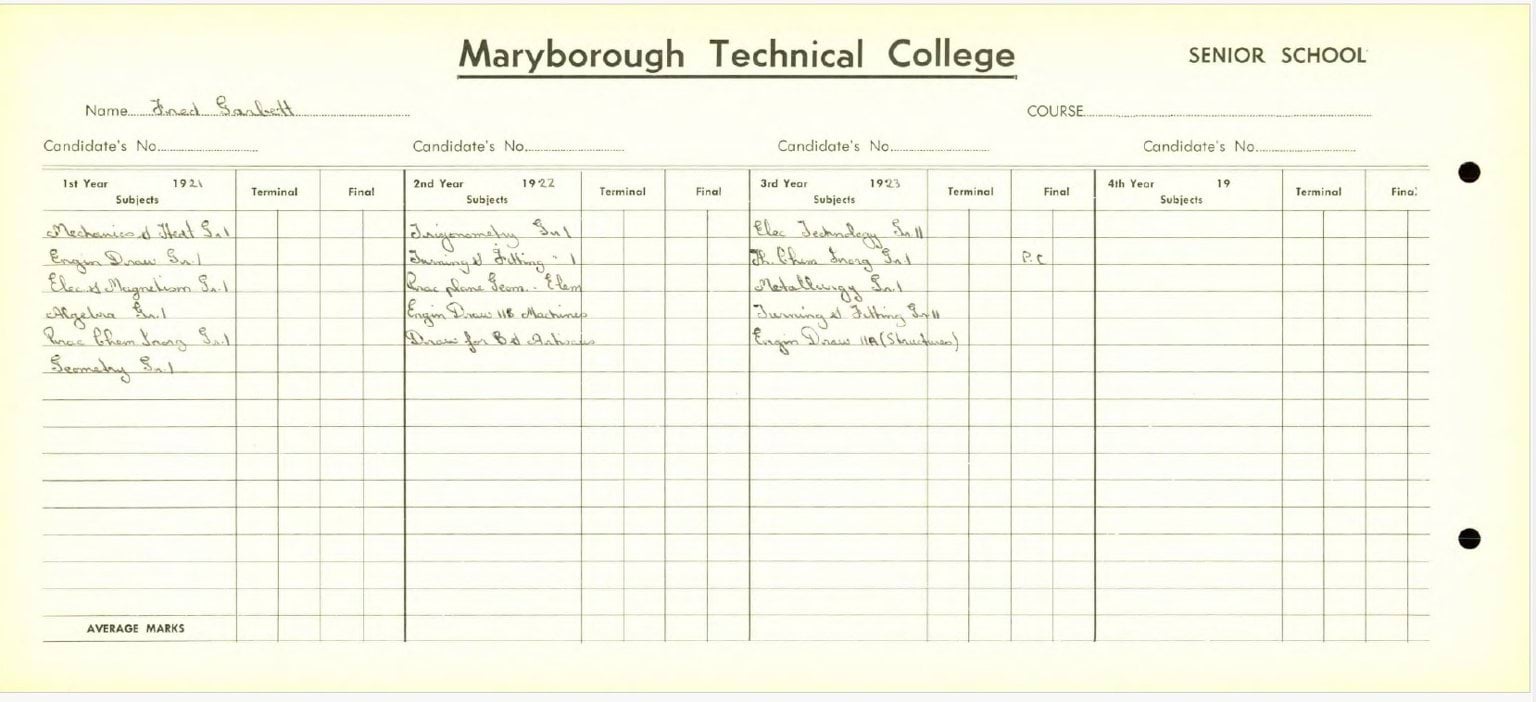 Maryborough Technical College
SENIOR SCHOOL
Name Fred Garbett
COURSE
Candidate's No.
Candidate's No.
Candidate's No.
Candidate's No.
1st Year 1921
Subjects
Terminal
Final
2nd Year 1922
Subjects
Terminal
Final
3rd Year 1923
Subjects
Terminal
Final
4th Year 19
Subjects
Terminal
Final
Mechanics & Heat Gr.I
Engin Draw Gr.I
Elec & Magnetism Gr.I
Algebra Gr.I
Prac Chem Inorg Gr.I
Geometry Gr.I
Trigonometry Gr I
Turning & Fitting " I
Prac plane Geom. Elem
Engin Draw IIB Machines
Draw for B & Artisans
Elec Technology Gr II
Th. Chem Inorg Gr.I P.C
Metallurgy Gr.I
Turning & Fitting Gr II
Engin Draw IIA (Structures)
AVERAGE MARKS